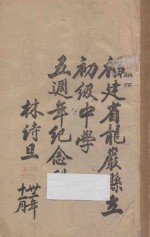 福建省龍巖縣立
初級中學
五週年紀念刊
林詩旦
卅年
十一月